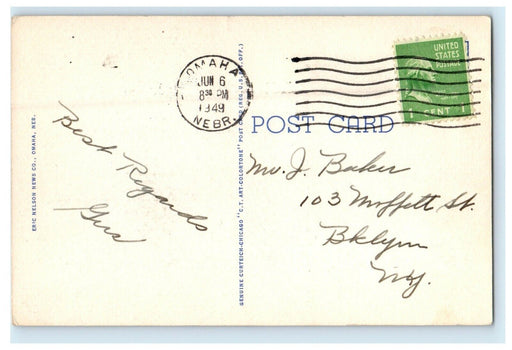 OMAHA
JUN 6
8 30 PM
1949
NEBR.
UNITED
STATES
POSTAGE
1 CENT 1
POST CARD
ERIC NELSON NEWS CO., OMAHA, NEB.
GENUINE CURTEICH-CHICAGO "C.T. ART-COLORTONE" POST CARD (REG. U.S. PAT. OFF.)
Best Regards
Gus
Mr. J. Baker
103 Moffett St.
Bklyn
N.Y.